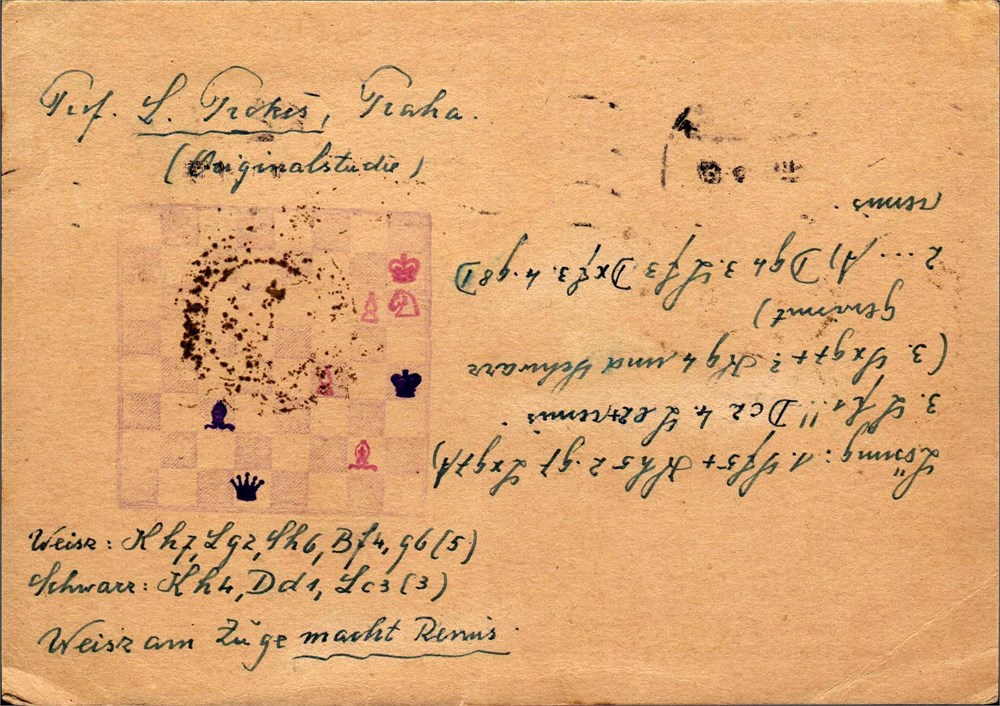 Prof. L. Prokeš, Praha.
(Originalstudie)
Weisz: Kh7, Lg2, Sh6, Bf4, g6 (5)
Schwarz: Kh4, Dd1, Lc3 (3)
Weisz am Zuge macht Remis.
Lösung: 1. Sf5+ Kh5 2. g7 Lxg7 A)
3. Lf1!! Dc2 4. Le2+ remis.
(3. Sxg7+? Kg4 und Schwarz
gewinnt)
2... A) Dg4 3. Lf3 Dxf3. 4. g8D
remis.